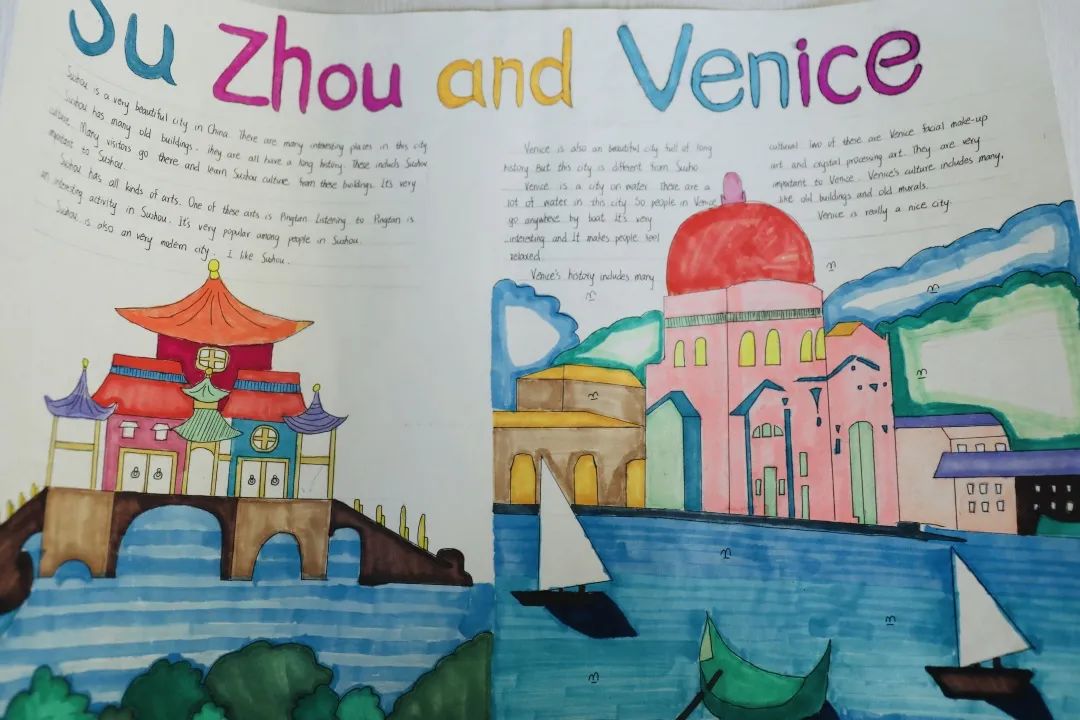 Su Zhou and Venice
Suzhou is a very beautiful city in China. There are many interesting places in this city
Suzhou has many old buildings. They are all have a long history. These includs Suzhou
culture. Many visitors go there and learn Suzhou culture from these buildings. It's very
impotant to Suzhou.
Suzhou has all kinds of arts. One of these arts is Pingtan Listening to Pingtan is
an interesting activity in Suzhou. It's very popular among people in Suzhou.
Suzhou is also an very modern city. I like Suzhou.
Venice is also an beautiful city full of long
history But this city is different from Suzho
Venice is a city on water There are a
lot of water in this city So people in Venice
go anywhere by boat It's very
interesting and It makes people feel
relaxed
Venice's history includes many
cultural Two of these are Venice facial make-up
art and crystal processing art. They are very
impotant to Venice. Venice's culture includes many,
like old buildings and old murals.
Venice is really a nice city.